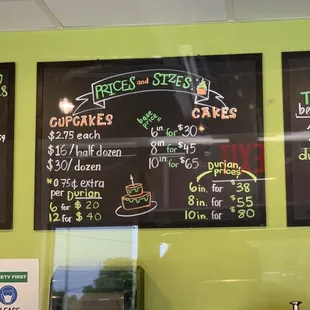 PRICES and SIZES
CUPCAKES
$2.75 each
$16/half dozen
$30/dozen
*0.75¢ extra
per Durian
6 for $20
12 for $40
base prices
CAKES
6in. for $30
8in. for $45
10in. for $65
Durian prices
6in. for $38
8in. for $55
10in. for $80
EXIT
SAFETY FIRST